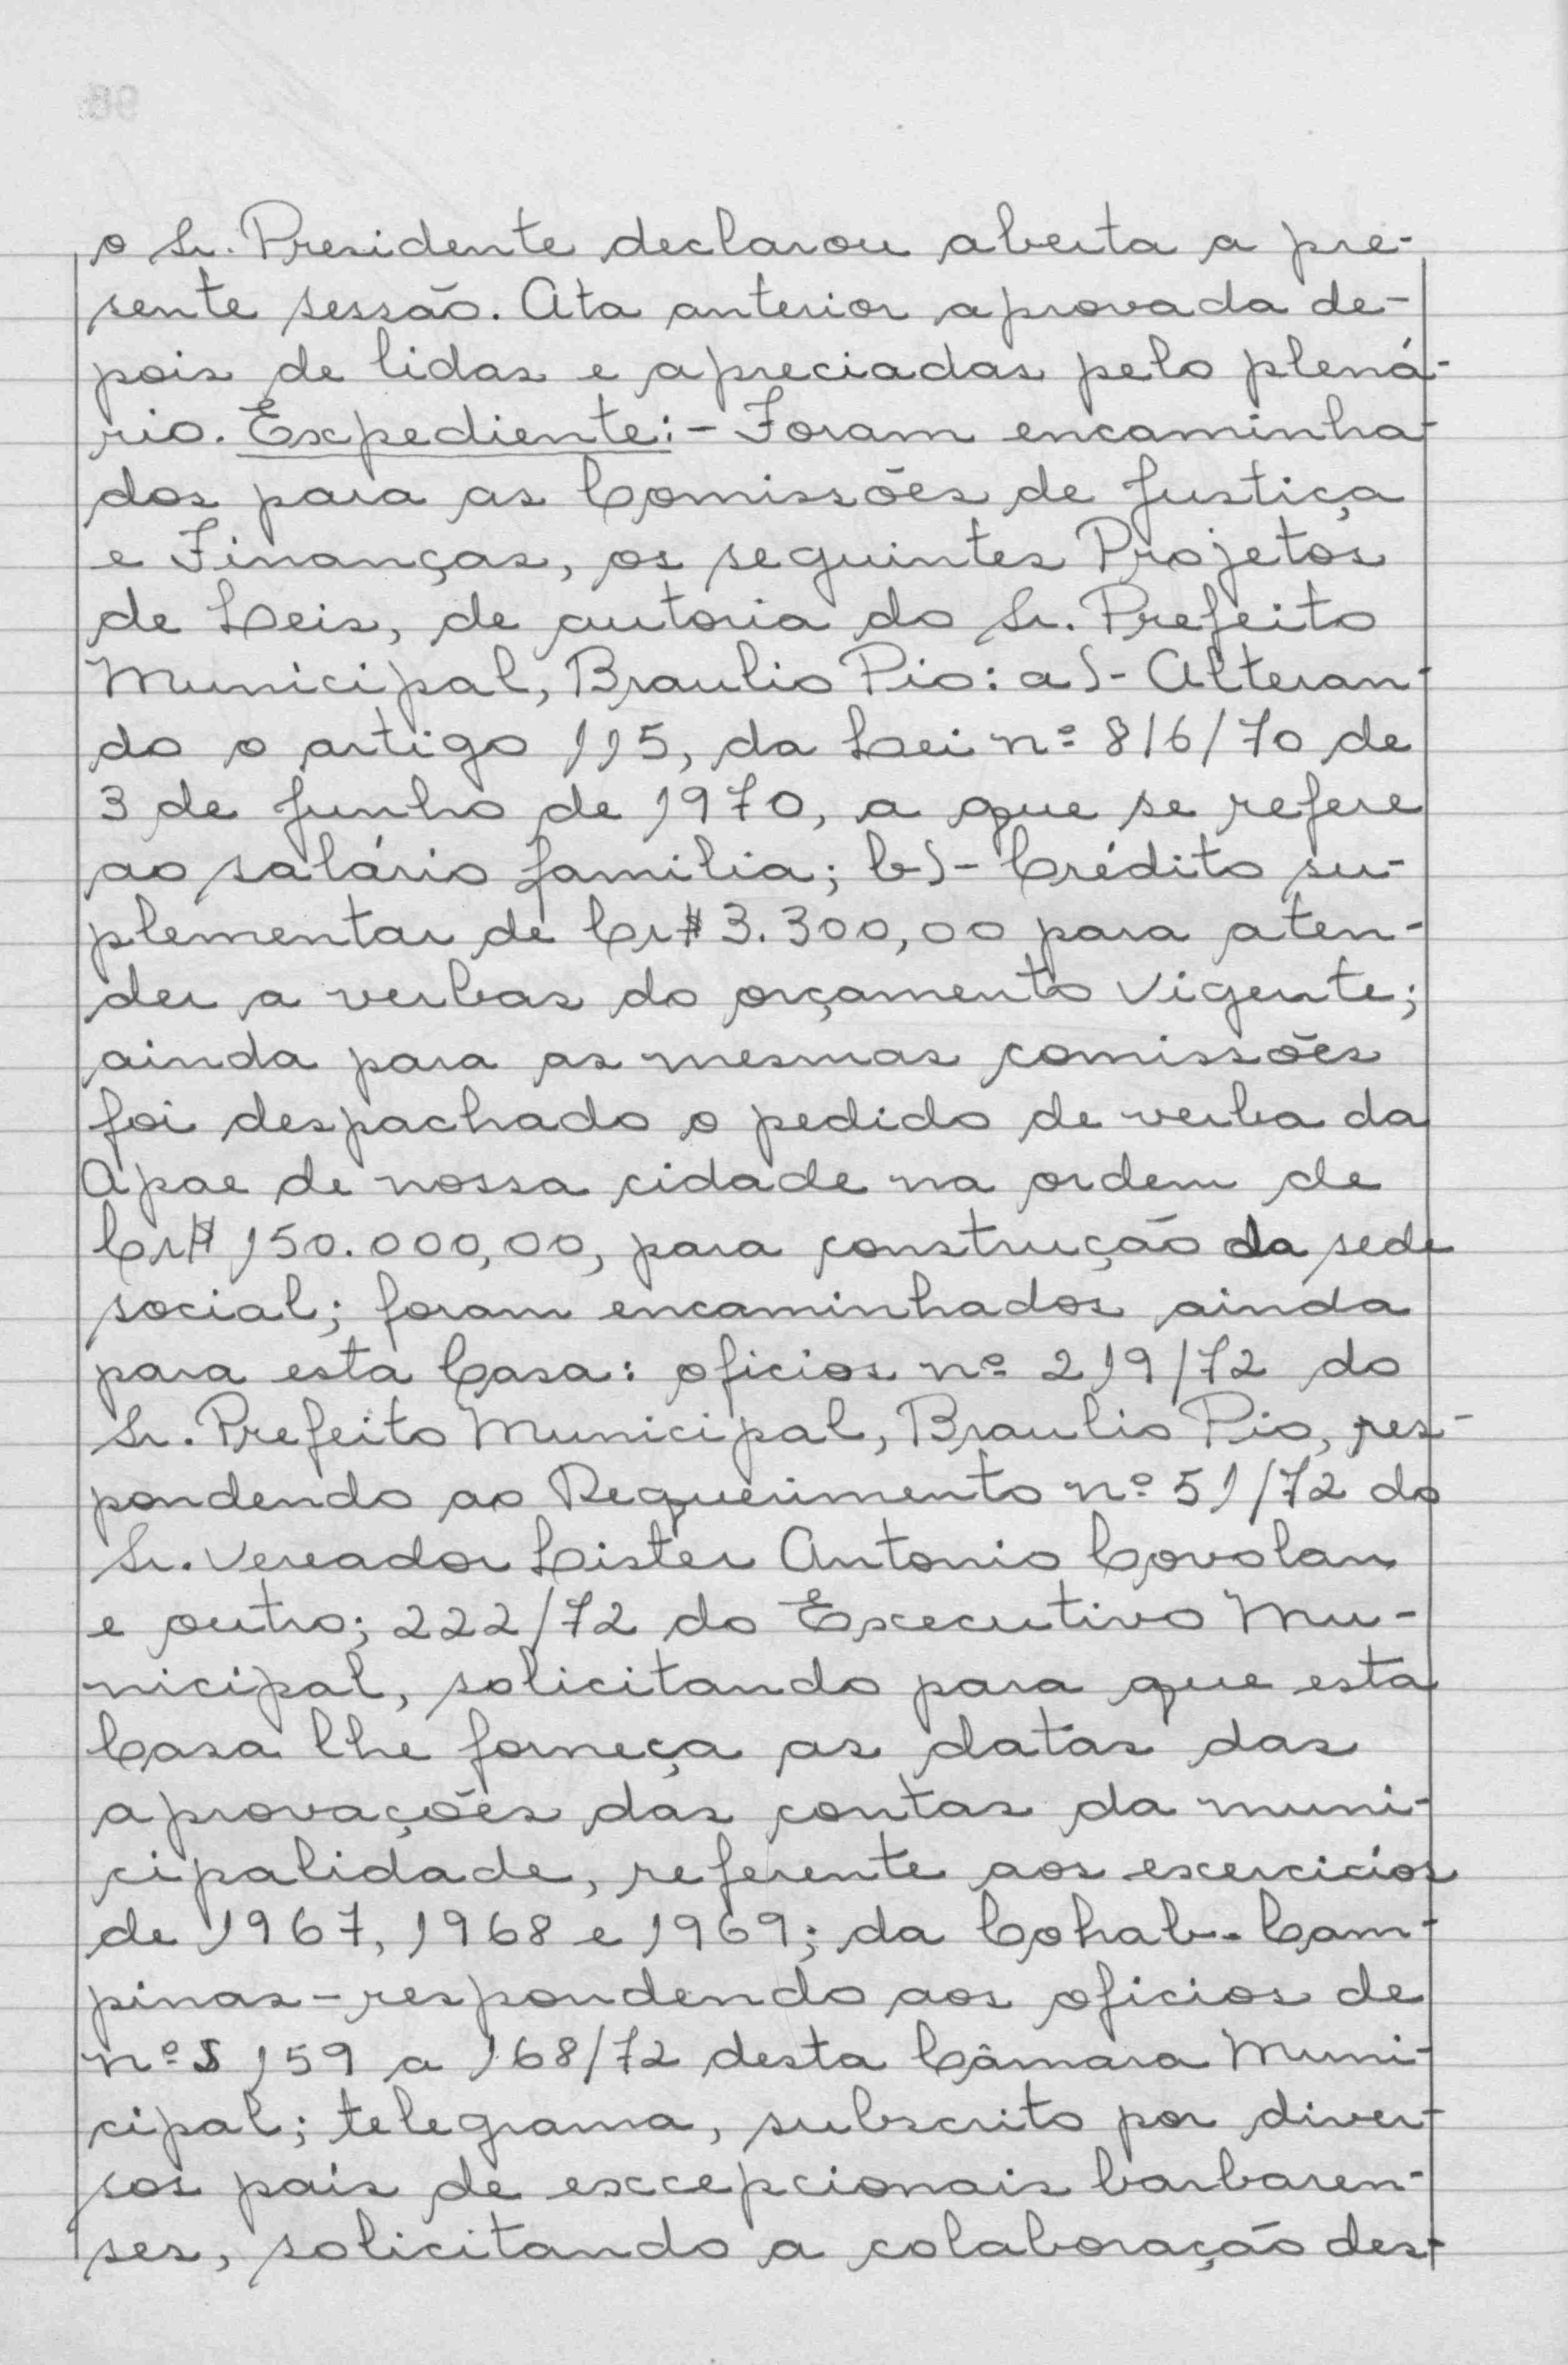 o Sr. Presidente declarou aberta a pre-
sente sessão. Ata anterior aprovada de-
pois de lidas e apreciadas pelo plená-
rio. Expediente:- Foram encaminha-
dos para as Comissões de Justiça
e Finanças, os seguintes Projetos
de Leis, de autoria do Sr. Prefeito
Municipal, Braulio Pio: a)- Alteran-
do o artigo 115, da Lei nº 816/70 de
3 de Junho de 1970, a que se refere
ao salário familia; b)- Crédito su-
plementar de Cr$ 3.300,00 para aten-
der a verbas do orçamento vigente;
ainda para as mesmas comissões
foi despachado o pedido de verba da
Apae de nossa cidade na ordem de
Cr$ 150.000,00, para construção da sede
social; foram encaminhados ainda
para esta Casa: oficios nº 219/72 do
Sr. Prefeito Municipal, Braulio Pio, res-
pondendo ao Requerimento nº 51/72 do
Sr. Vereador Lister Antonio Covolan
e outro; 222/72 do Executivo Mu-
nicipal, solicitando para que esta
Casa lhe forneça as datas das
aprovações das contas da muni-
cipalidade, referente aos exercicios
de 1967, 1968 e 1969; da Cohab-Cam-
pinas-respondendo aos oficios de
nºs 159 a 168/72 desta Câmara Muni-
cipal; telegrama, subscrito por diver-
sos pais de excepcionais barbaren-
ses, solicitando a colaboração des-